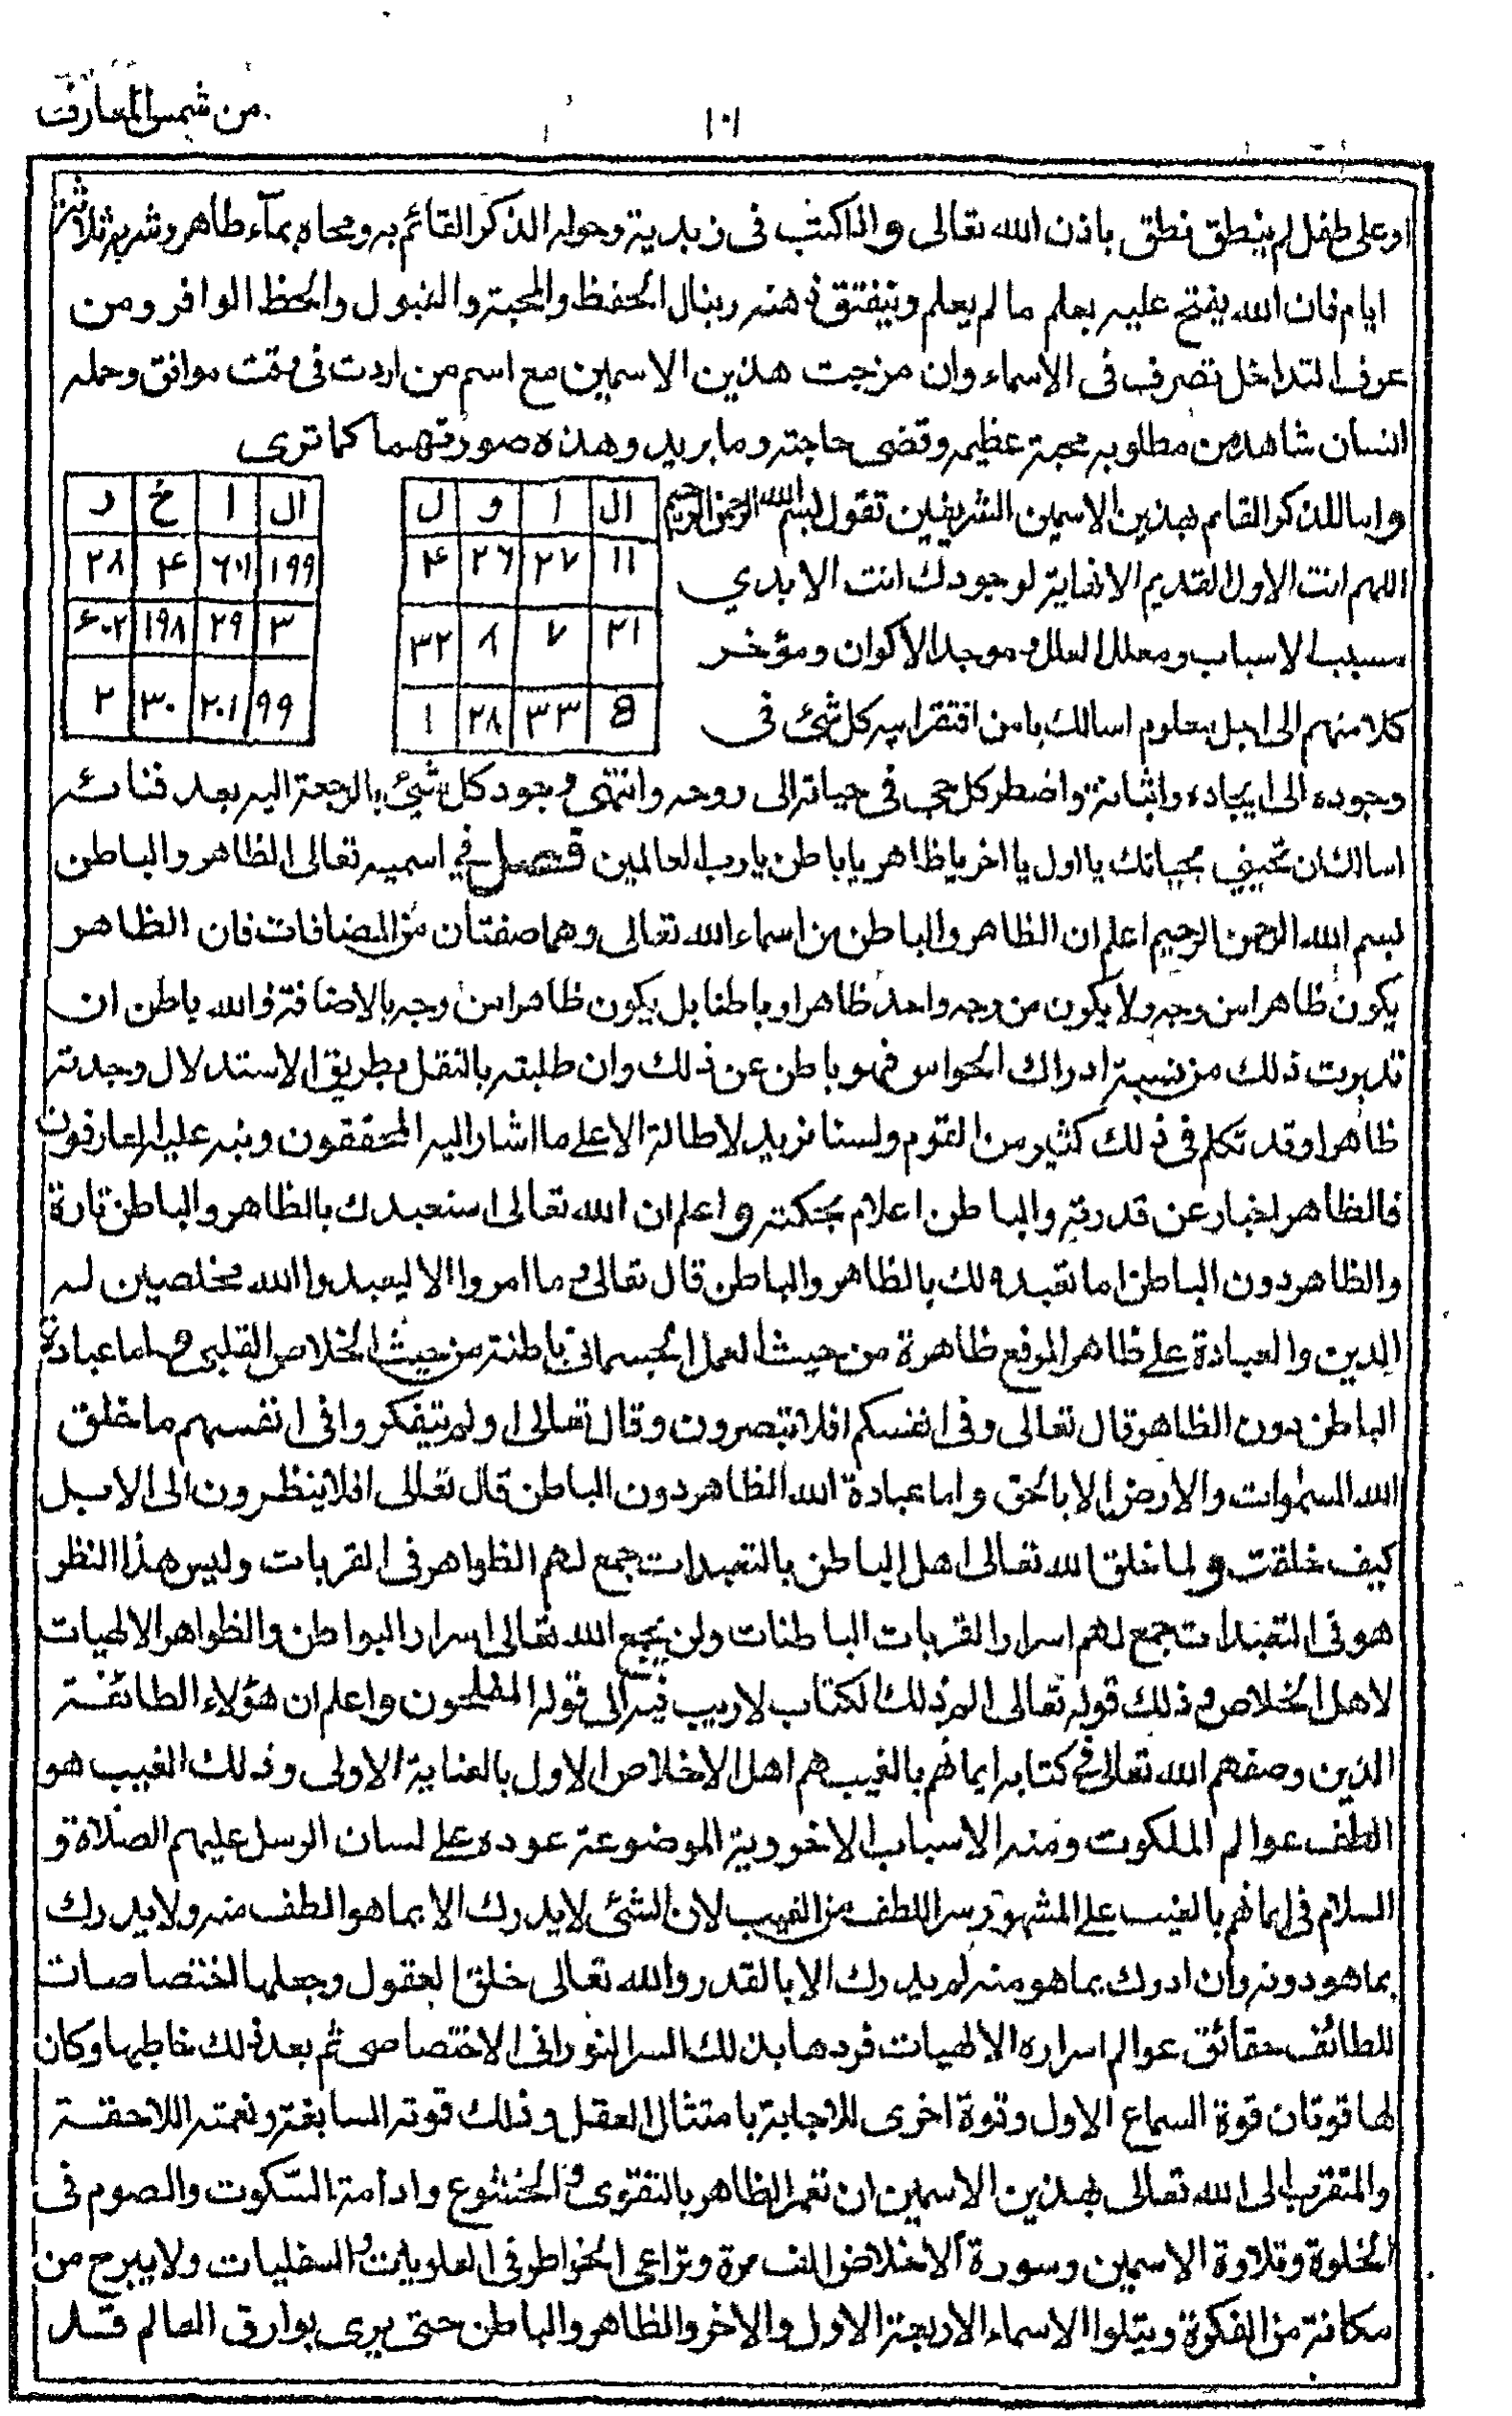 من شمس المعارف
١٠١
او على طفل لم ينطق نطق باذن الله تعالى واذا كتب فى زبدية وحوله الذكر القائم به ومحاه بماء طاهر وشربه ثلاثة
ايام فان الله يفتح عليه بعلم ما لم يعلم وينفتق ذهنه وينال الحفظ والمحبة والقبول والحظ الوافر ومن
عرف التداخل تصرف فى الاسماء وان مزجت هذين الاسمين مع اسم من اردت فى وقت موافق وحمله
انسان شاهد من مطلوبه محبة عظيمه وقضى حاجته وما يريد وهذه صورتهما كما ترى
واما الذكر القائم بهذين الاسمين الشريفين تقول بسم الله الرحمن الرحيم
اللهم انت الاول القديم الانهاية لوجودك انت الابدي
مسبب الاسباب ومعلل العلل وموجد الاكوان ومؤخر
كلا منهم الى اجل معلوم اسالك يا من افتقر اليه كل شئ فى
ال ا و ل
١١ ٢٧ ٢٦ ۴
٣١ ٧ ٨ ٣٢
8 ٣٣ ٢٨ ١
ال ا خ ر
١٩٩ ٦٠١ ۴ ٢٨
٣ ٢٩ ١٩٨ ۶٠٢
٩٩ ٢٠١ ٣٠ ٢
وجوده الى ايجاده واثباته واضطر كل حى فى حياته الى روحه وانتهى وجود كل شئ بالرجعة اليه بعد فنائه
اسالك ان تحيينى بحياتك يا اول يا اخر يا ظاهر يا باطن يا رب العالمين فصل في اسميه تعالى الظاهر والباطن
بسم الله الرحمن الرحيم اعلم ان الظاهر والباطن من اسماء الله تعالى وهما صفتان من المضافات فان الظاهر
يكون ظاهرا من وجه ولا يكون من وجه واحد ظاهرا وباطنا بل يكون ظاهرا من وجه بالاضافة والله باطن ان
تدبرت ذلك من نسبة ادراك الحواس فهو باطن عن ذلك وان طلبته بالنقل وطريق الاستدلال وجدته
ظاهرا وقد تكلم فى ذلك كثير من القوم ولسنا نريد لاطالة الا على ما اشار اليه المحققون ونبه عليه العارفون
فالظاهر اخبار عن قدرته والباطن اعلام بحكمته واعلم ان الله تعالى استعبدك بالظاهر والباطن تارة
والظاهر دون الباطن اما تعبده لك بالظاهر والباطن قال تعالى وما امروا الا ليعبدوا الله مخلصين له
الدين والعبادة على ظاهر الموقع ظاهرة من حيث العمل الجسمانى باطنة من حيث الخلاص القلبى واما عبادة
الباطن دون الظاهر قال تعالى وفى انفسكم افلا تبصرون وقال تعالى اولم يتفكروا فى انفسهم ما خلق
الله السموات والارض الا بالحق واما عبادة الله الظاهر دون الباطن قال تعالى افلا ينظرون الى الابل
كيف خلقت ولما خلق الله تعالى اهل الباطن بالتعبدات جمع لهم الظواهر فى القربات وليس هذا النظر
هو فى التعبدات جمع لهم اسرار القربات الباطنات ولن يجمع الله تعالى اسرار البواطن والظواهر الالهيات
لاهل الخلاص وذلك قوله تعالى الم ذلك الكتاب لا ريب فيه الى قوله المفلحون واعلم ان هؤلاء الطائفة
الذين وصفهم الله تعالى فى كتابه ايمانهم بالغيب هم اهل الاخلاص الاول بالعناية الاولى وذلك الغيب هو
الطف عوالم الملكوت ومنه الاسباب الاخروية الموضوعة عوده على لسان الرسل عليهم الصلاة و
السلام فى ايمانهم بالغيب على المشهور سر اللطف من الغيب لان الشئ لا يدرك الا بما هو الطف منه ولا يدرك
بما هو دونه وان ادرك بما هو منه لم يدرك الا بالقدر والله تعالى خلق العقول وجعلها اختصاصات
للطائف حقائق عوالم اسراره الالهيات فردها بذلك السر النورانى الاختصاصى ثم بعد ذلك خاطبها وكان
لها قوتان قوة السماع الاول وقوة اخرى للاجابة بامتثال العقل وذلك قوته السابغة ونعمته اللاحقة
والمتقرب الى الله تعالى بهذين الاسمين ان تعمر الظاهر بالتقوى والخشوع وادامة السكوت والصوم فى
الخلوة وتلاوة الاسمين وسورة الاخلاص الف مرة وتراعى الخواطر فى العلويات والسفليات ولا يبرح من
مكانه من الفكرة ويتلوا الاسماء الاربعة الاول والاخر والظاهر والباطن حتى يرى بوارق العالم قد